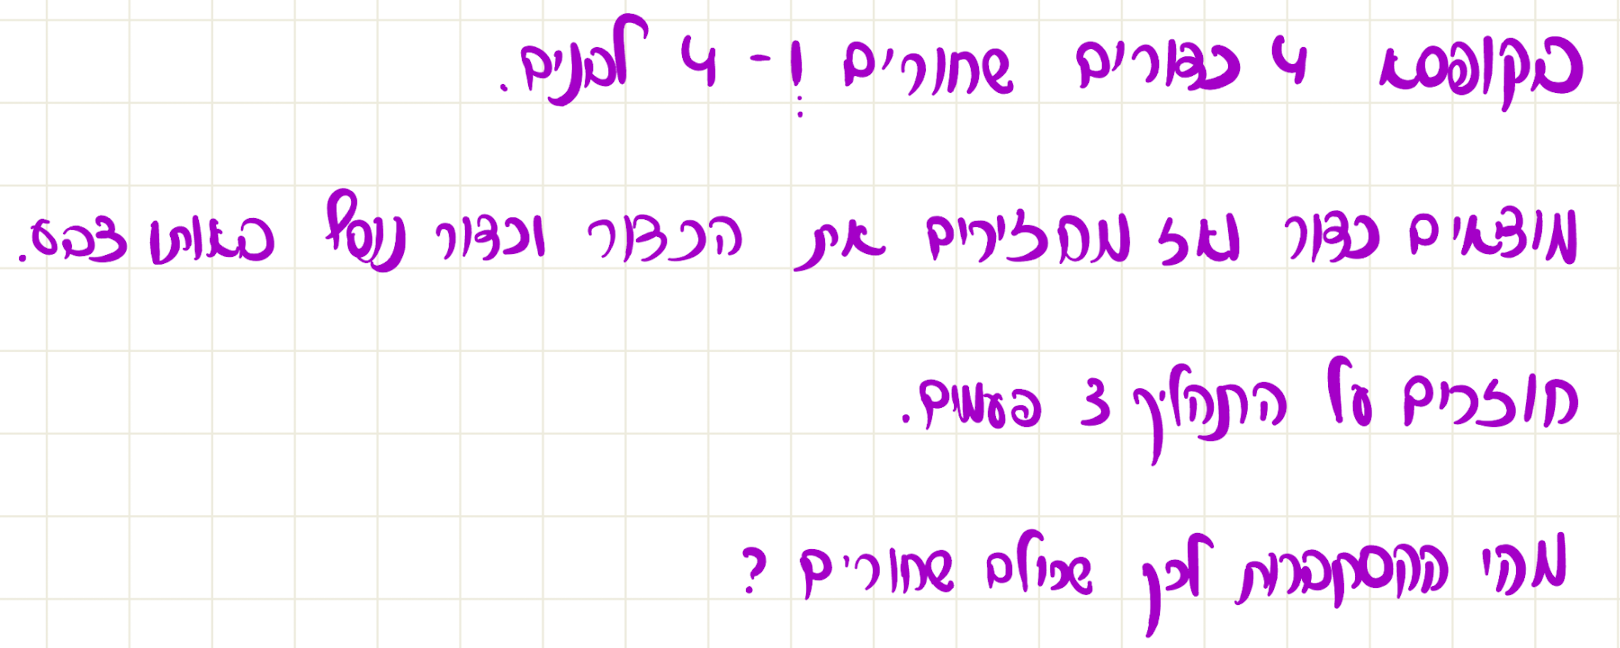 בקופסא 4 כדורים שחורים ו- 4 לבנים.
מוצאים כדור ואז מחזירים את הכדור וכדור נוסף באותו צבע.
חוזרים על התהליך 3 פעמים.
מהי ההסתברות לכך שכולם שחורים ?